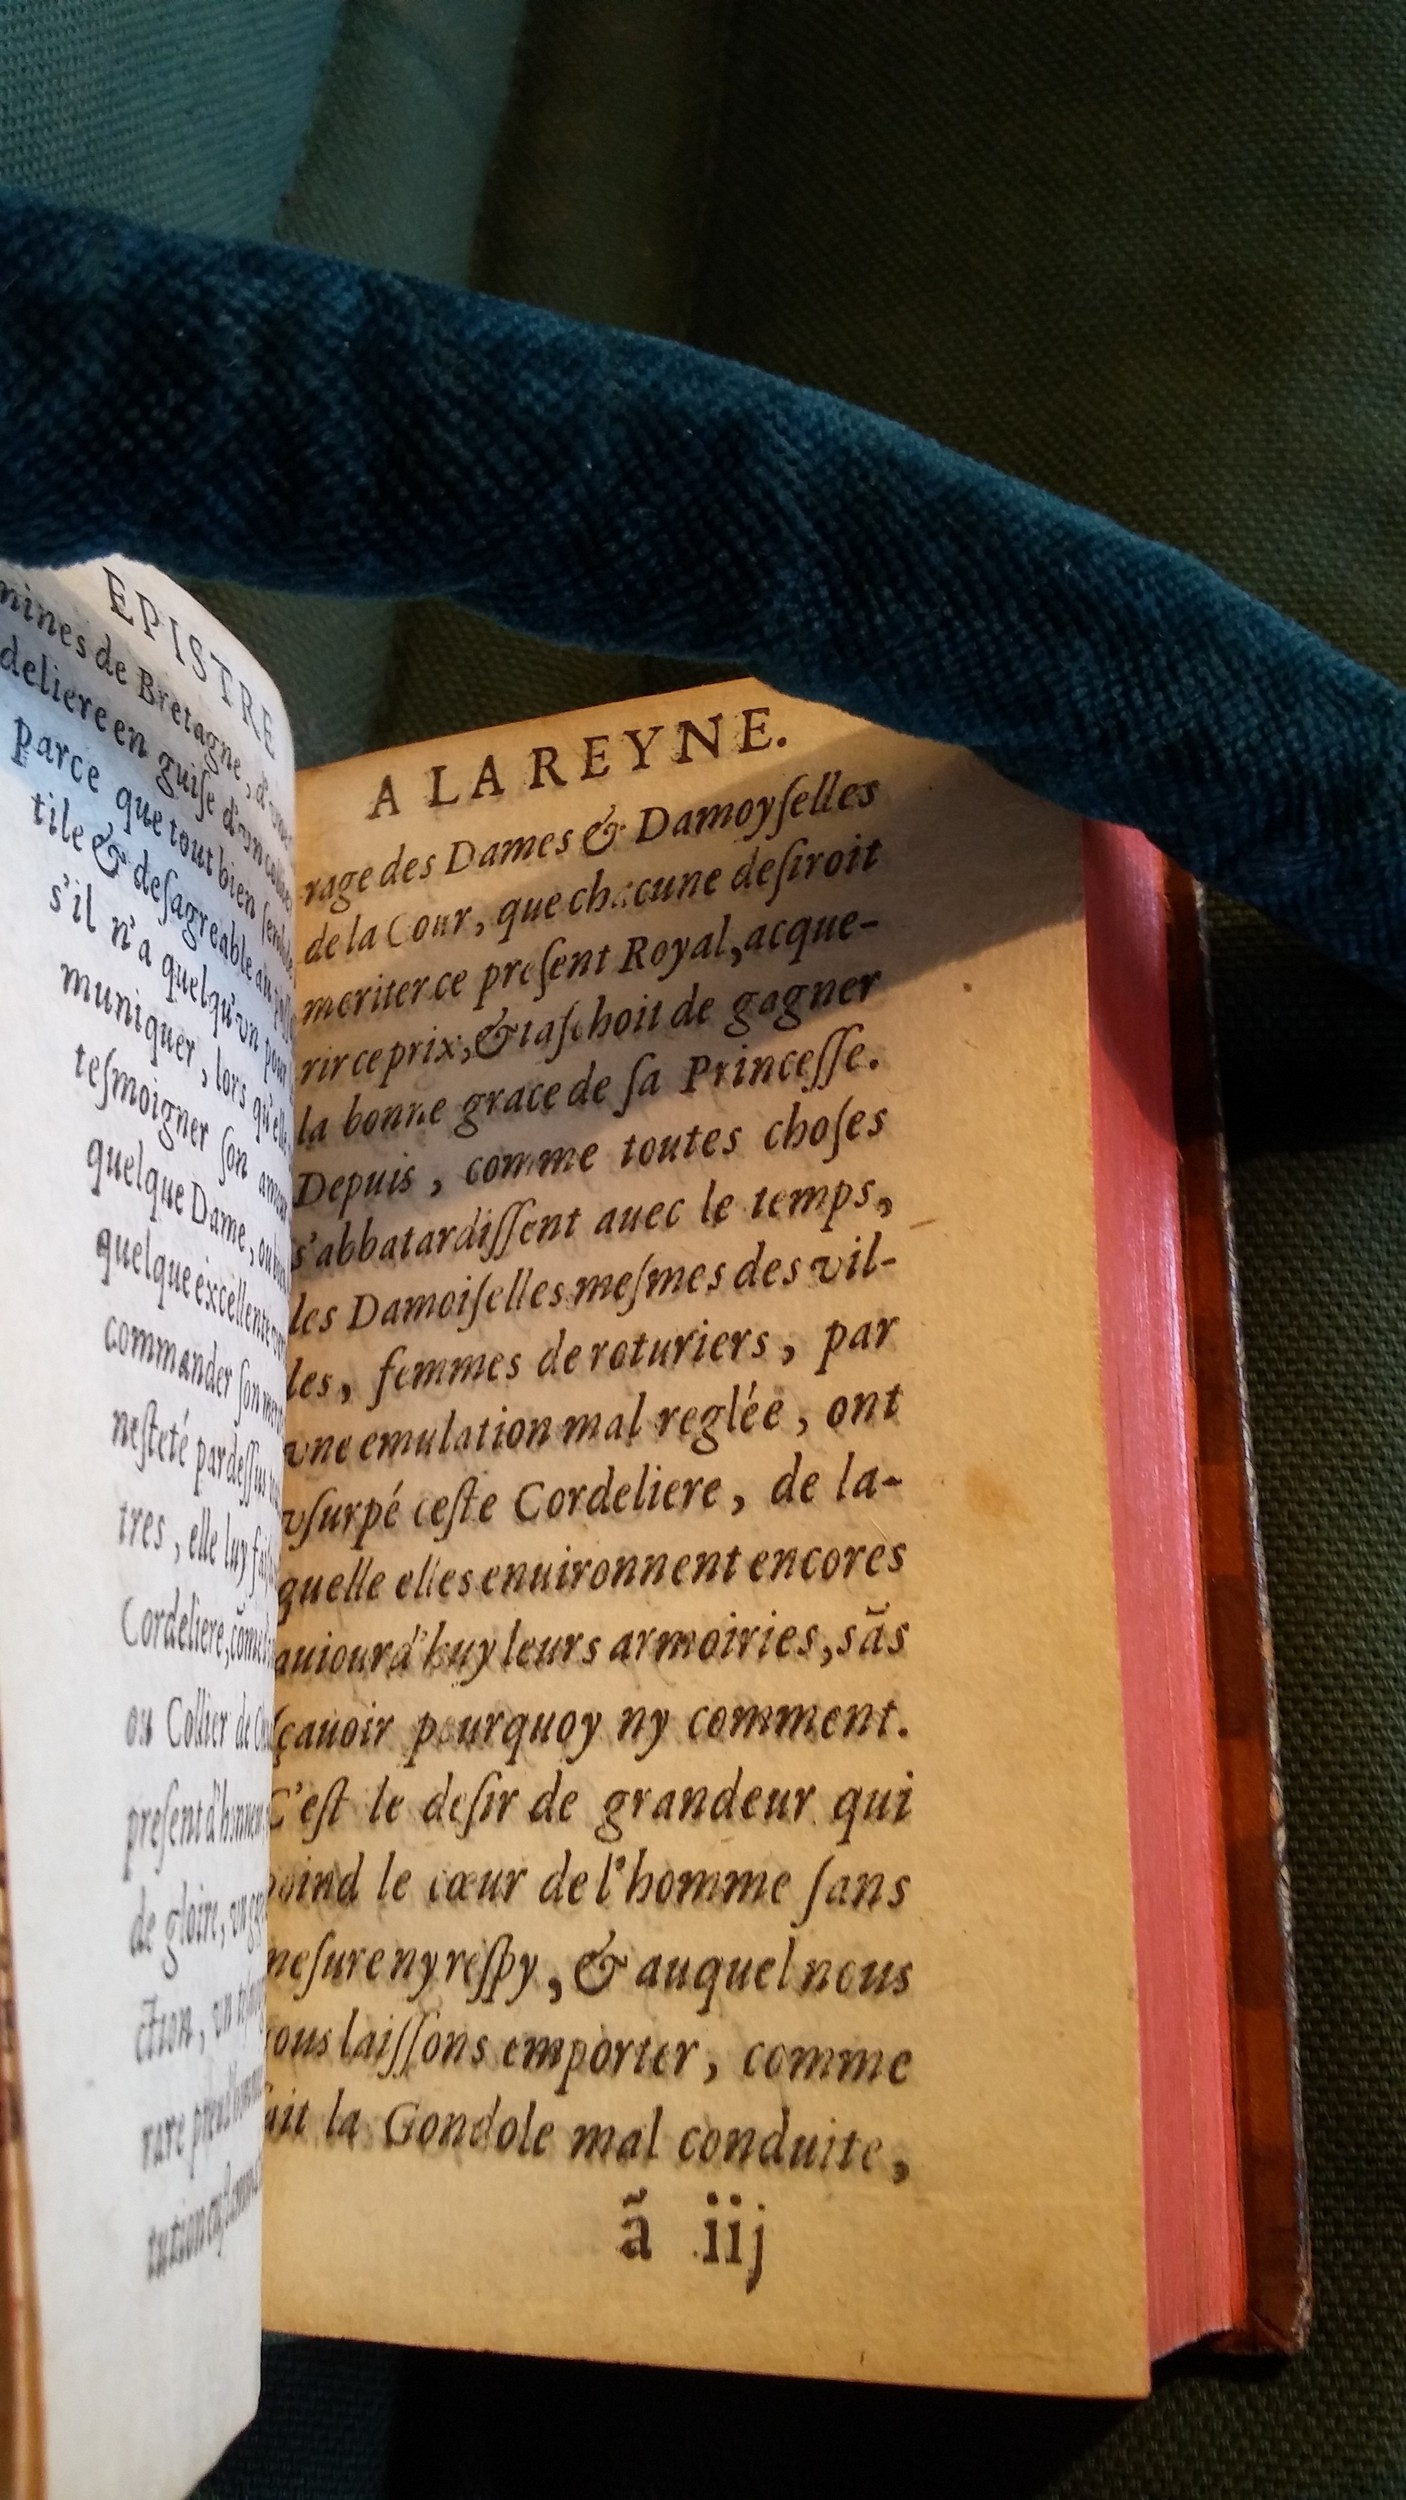 EPISTRE
mines de Bretagne,
deliere en guiſe d'vn
parce que tout bien
tile & deſagreable au
s'il n'a quelqu'vn pour
muniquer, lors qu'elle
teſmoigner ſon amour
quelque Dame,
quelque excellente
commander ſon
neſteté pardeſſus
tres, elle luy
Cordeliere, cõme
ou Collier de
preſent d'honneur
de gloire, vn
ction, vn
rare
A LA REYNE.
rage des Dames & Damoyſelles
de la Cour, que chacune deſiroit
meriter ce preſent Royal, acque-
rir ce prix, & taſchoit de gagner
la bonne grace de ſa Princeſſe.
Depuis, comme toutes choſes
s'abbatardiſſent auec le temps,
les Damoiſelles meſmes des vil-
les, femmes de roturiers, par
vne emulation mal reglée, ont
vſurpé ceſte Cordeliere, de la-
quelle elles enuironnent encores
auiourd'huy leurs armoiries, sãs
ſçauoir pourquoy ny comment.
C'eſt le deſir de grandeur qui
poind le cœur de l'homme ſans
meſure ny reſpy, & auquel nous
nous laiſſons emporter, comme
fait la Gondole mal conduite,
ã iij